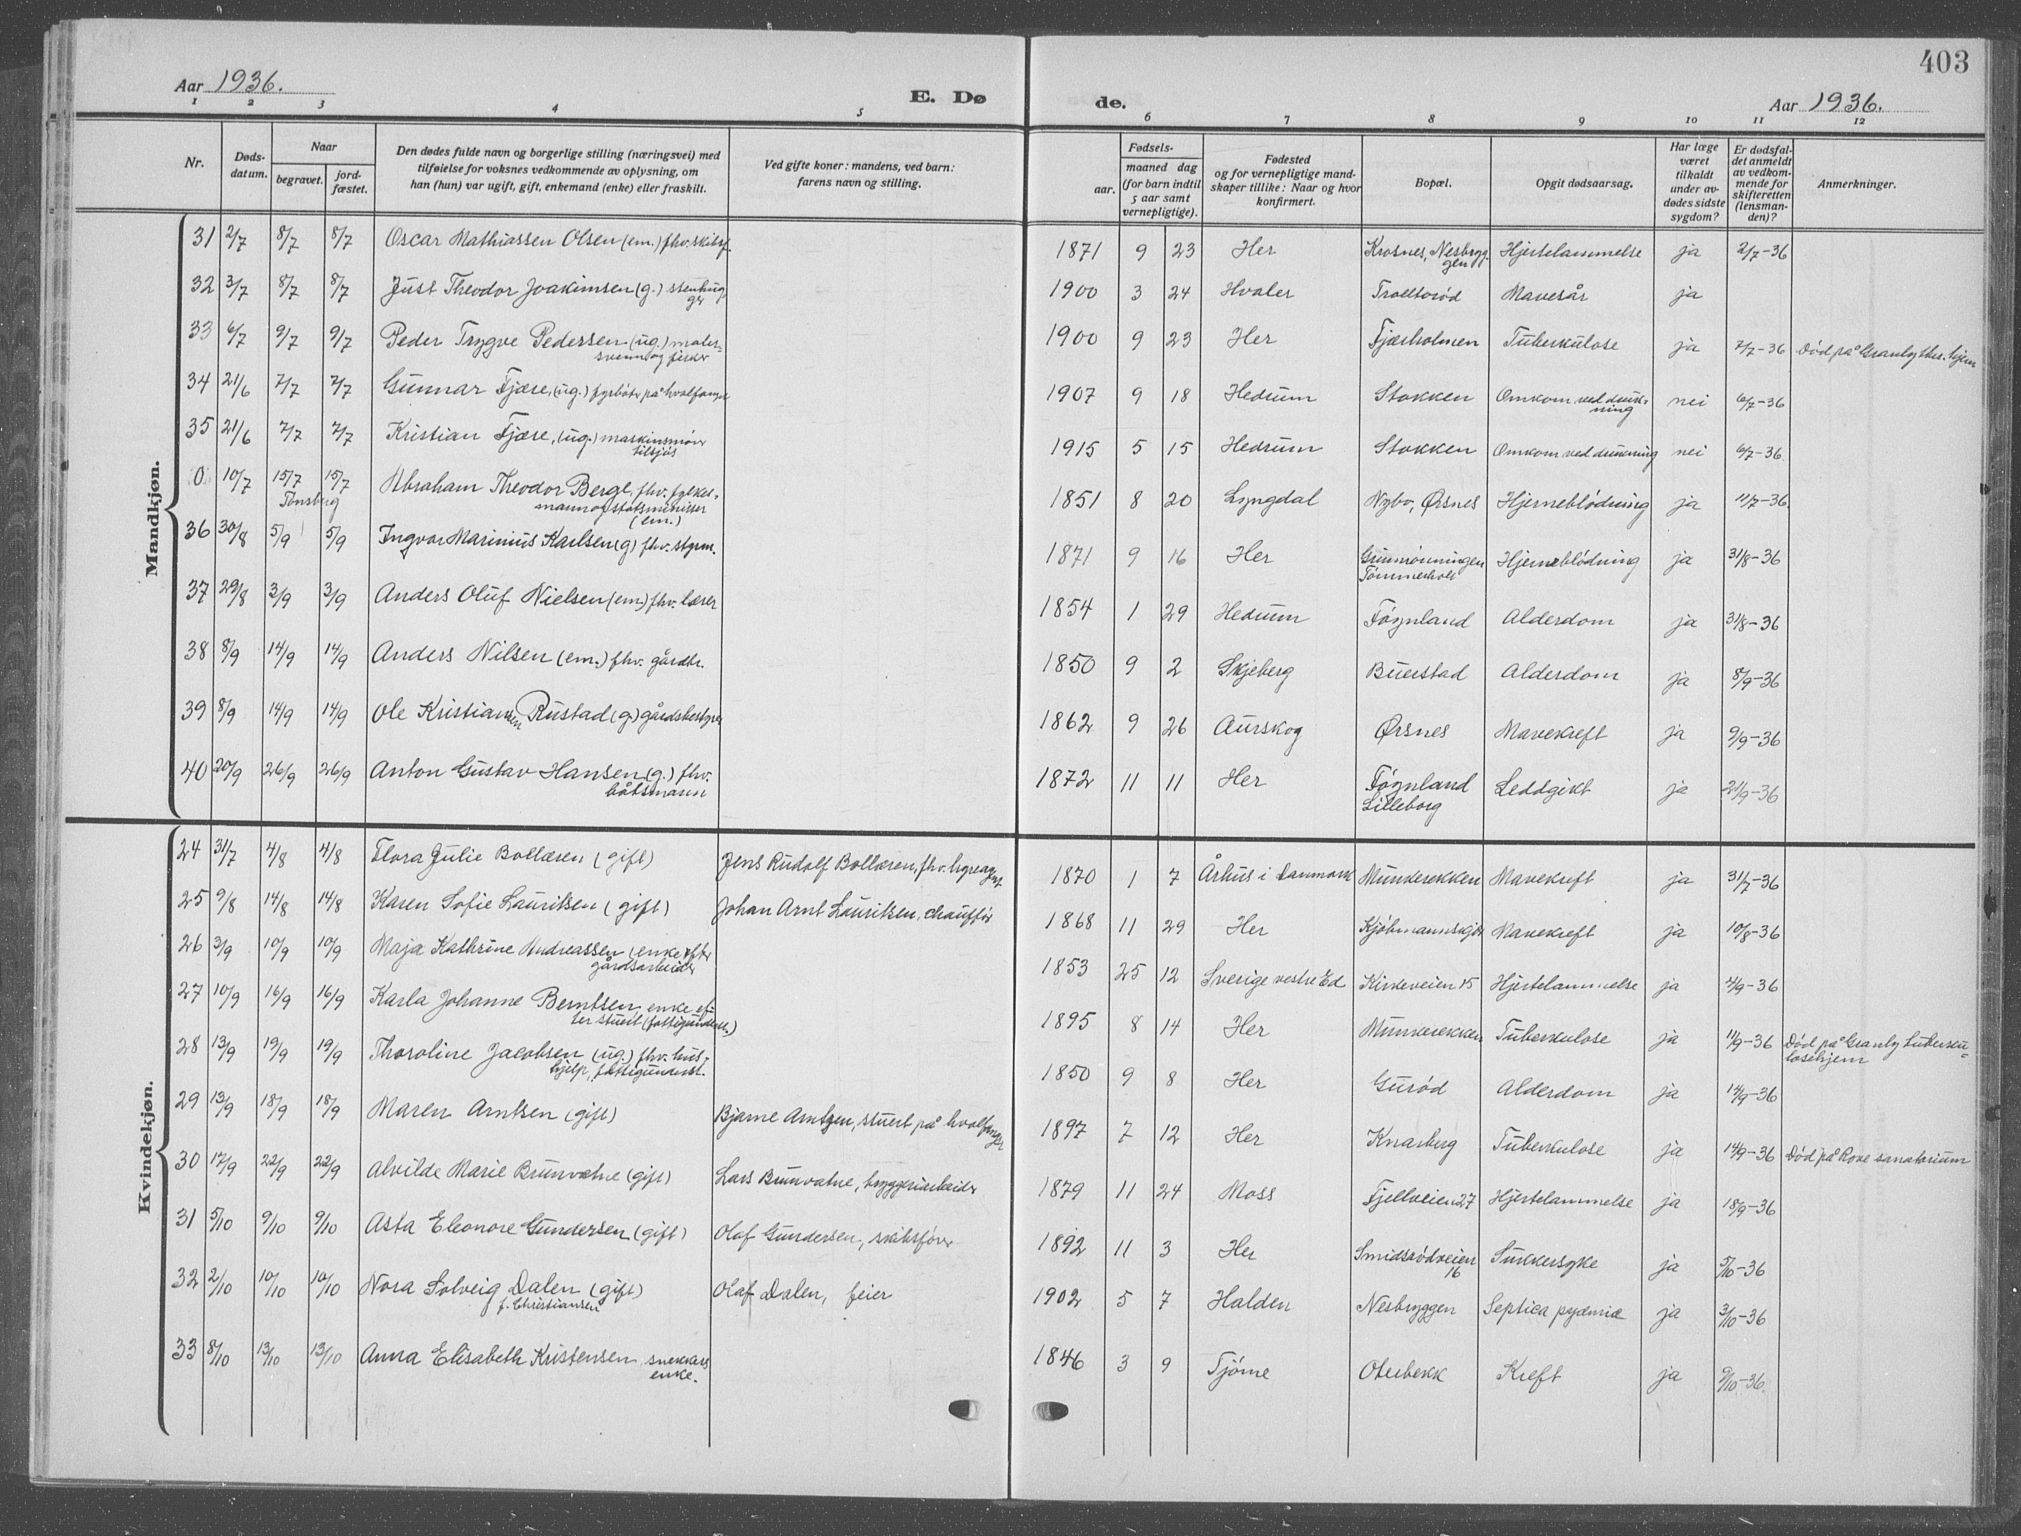 403
Aar 1936.
E. Dø
de.
Aar 1936.
1 2 3 4 5 6 7 8 9 10 11 12
Nr.
Døds-
datum.
Naar
begravet.
jord-
fæstet.
Den dødes fulde navn og borgerlige stilling (næringsvei) med
tilføielse for voksnes vedkommende av oplysning, om
han (hun) var ugift, gift, enkemand (enke) eller fraskilt.
Ved gifte koner: mandens, ved barn:
farens navn og stilling.
Fødsels-
aar.
maaned dag
(for barn indtil
5 aar samt
vernepligtige).
Fødested
og for vernepligtige mand-
skaper tillike: Naar og hvor
konfirmert.
Bopæl.
Opgit dødsaarsag.
Har læge
været
tilkaldt
under av-
dødes sidste
sygdom?
Er dødsfal-
det anmeldt
av vedkom-
mende for
skifteretten
(lensman-
den)?
Anmerkninger.
Mandkjøn.
31 2/7 8/7 8/7 Oscar Mathiassen Olsen (em.) fhv. skibsf. 1871 9 23 Her Krosnes, Nesbryg-
gen Hjertelammelse ja 2/7-36
32 3/7 8/7 8/7 Just Theodor Joakimsen (g.) stenhug-
ger 1900 3 24 Hvaler Trolltorød Mavesår ja
33 6/7 9/7 9/7 Peder Trygve Pedersen (ug.) maler-
svenn og fisker 1900 9 23 Her Fjærholmen Tuberkulose ja 7/7-36 Død på Granly tbs. hjem
34 21/6 7/7 7/7 Gunnar Fjære, (ug.) fyrbøter på hvalfanger 1907 9 18 Hedrum Stokken Omkom ved druk-
ning nei 6/7-36
35 21/6 7/7 7/7 Kristian Fjære, (ug.)
tilsjøs 1915 5 15 Hedrum Stokken Omkom ved drukning nei 6/7-36
0 10/7 15/7 15/7 Abraham Theodor Berge, fhv. fylkes-
Tønsberg mann og statsminister
(em.) 1851 8 20 Lyngdal Nybo, Ørsnes Hjerneblødning ja 11/7-36
36 30/8 5/9 5/9 Ingvar Marinius Karlsen (g) fhv. styrm. 1871 9 16 Her
Tømmerholt Hjerneblødning ja 31/8-36
37 29/8 3/9 3/9 Anders Oluf Nielsen (em.) fhv. lærer 1854 1 29 Hedrum Føynland Alderdom ja 31/8-36
38 8/9 14/9 14/9 Anders Nilsen (em.) fhv. gårdbr. 1850 9 2 Skjeberg Buerstad Alderdom ja 8/9-36
39 8/9 14/9 14/9 Ole Kristiansen Rustad (g) gårdsbestyrer 1862 9 26 Aurskog Ørsnes Mavekreft ja 9/9-36
40 20/9 26/9 26/9 Anton Gustav Hansen (g.) fhv.
båtsmann 1872 11 11 Her Føynland
Lilleborg Leddgikt ja 21/9-36
Kvindekjøn.
24 31/7 4/8 4/8 Flora Julie Bollæren (gift) Jens Rudolf Bollæren, fhv. hyreagent 1870 1 7 Århus i Danmark Munkerekken Mavekreft ja 31/7-36
25 9/8 14/8 14/8 Karen Sofie Lauritsen (gift) Johan Arnt Lauritsen, chauffør 1868 11 29 Her Kjøbmannskjær Mavekreft ja 10/8-36
26 3/9 10/9 10/9 Maja Kathrine Andreassen (enke efter
gårdsarbeider 1853 25 12 Sverige vestre Ed Kirkeveien 15 Hjertelammelse ja 4/9-36
27 10/9 16/9 16/9 Karla Johanne Berntsen, enke ef-
ter stuert (fattigunderst.) 1895 8 14 Her Munkerekken Tuberkulose ja 11/9-36 Død på Granly tuberku-
losehjem
28 13/9 19/9 19/9 Thoroline Jacobsen (ug.) fhv. hus-
hjelp, fattigunderst. 1850 9 8 Her Gurød Alderdom ja 14/9-36
29 13/9 18/9 18/9 Maren Arntsen (gift) Bjarne Arntzen, stuert på hvalfanger 1897 7 12 Her Knarberg Tuberkulose ja 14/9-36 Død på Rove sanatorium
30 17/9 22/9 22/9 Alvilde Marie Brunvatne (gift) Lars Brunvatne, bryggeriarbeider 1879 11 24 Moss Fjellveien 27 Hjertelammelse ja 18/9-36
31 5/10 9/10 9/10 Asta Eleonore Gundersen (gift) Olaf Gundersen, skibsfører 1892 11 3 Her Smidsrødveien
16 Sukkersyke ja 5/10-36
32 2/10 10/10 10/10 Nora Solveig Dalen (gift)
f. Christiansen Olaf Dalen, feier 1902 5 7 Halden Nesbryggen Septica pyæmiæ ja 3/10-36
33 8/10 13/10 13/10 Anna Elisabeth Kristensen, snekkers
enke. 1846 3 9 Tjøme Oterbekk Kreft ja 9/10-36.